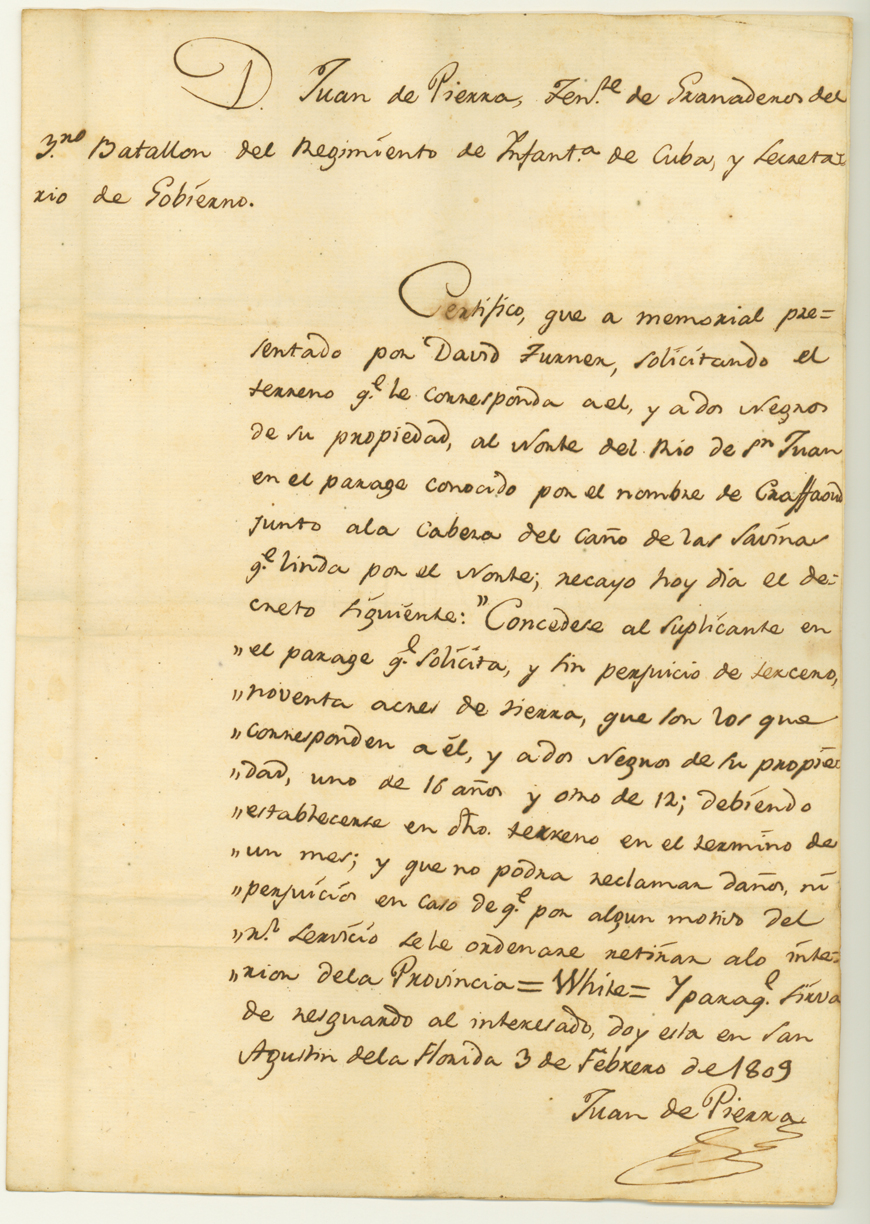 D. Juan de Pierra, Ten.te de Granaderos del
3.no Batallon del Regimiento de Infant.a de Cuba, y Secreta=
rio de Gobierno.
Certifico, que a memorial pre=
sentado por David Turner, solicitando el
terreno q.e le corresponda a el, y a dos Negros
de su propiedad, al Norte del Rio de Sn Juan
en el parage conocido por el nombre de
junto ala Cabeza del Caño de las Savinas
q.e linda por el Norte; recayo hoy dia el de=
creto siguiente: "Concedese al suplicante en
"el parage q.e solicita, y sin perjuicio de tercero,
"noventa acres de tierra, que son los que
"corresponden a él, y a dos Negros de su propie=
"dad, uno de 16 años y otro de 12; debiendo
"establecerse en dho. terreno en el termino de
"un mes; y que no podra reclamar daños, ni
"perjuicios en caso de q.e por algun motivo del
"r.l servicio se le ordenare retirar alo inte=
"rior dela Provincia = White = Y para q.e sirva
de resguardo al interesado, doy esta en San
Agustin dela Florida 3 de Febrero de 1809
Juan de Pierra